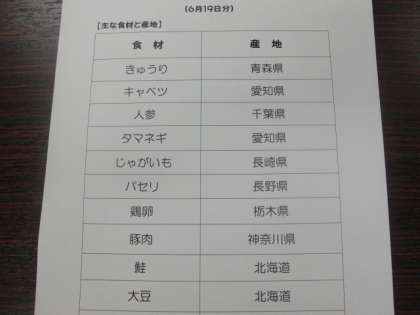 (6月19日分)
【主な食材と産地】
食 材 産 地
きゅうり 青森県
キャベツ 愛知県
人参 千葉県
タマネギ 愛知県
じゃがいも 長崎県
パセリ 長野県
鶏卵 栃木県
豚肉 神奈川県
鮭 北海道
大豆 北海道